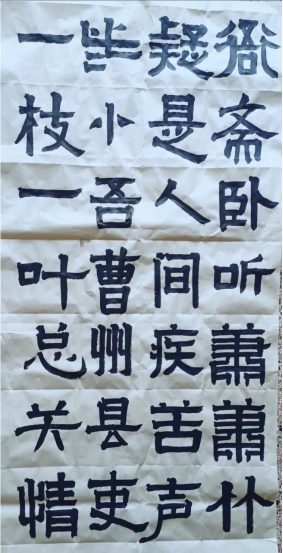 衙斋卧听蕭蕭竹
疑是人间疾苦声
些小吾曹州县吏
一枝一叶总关情